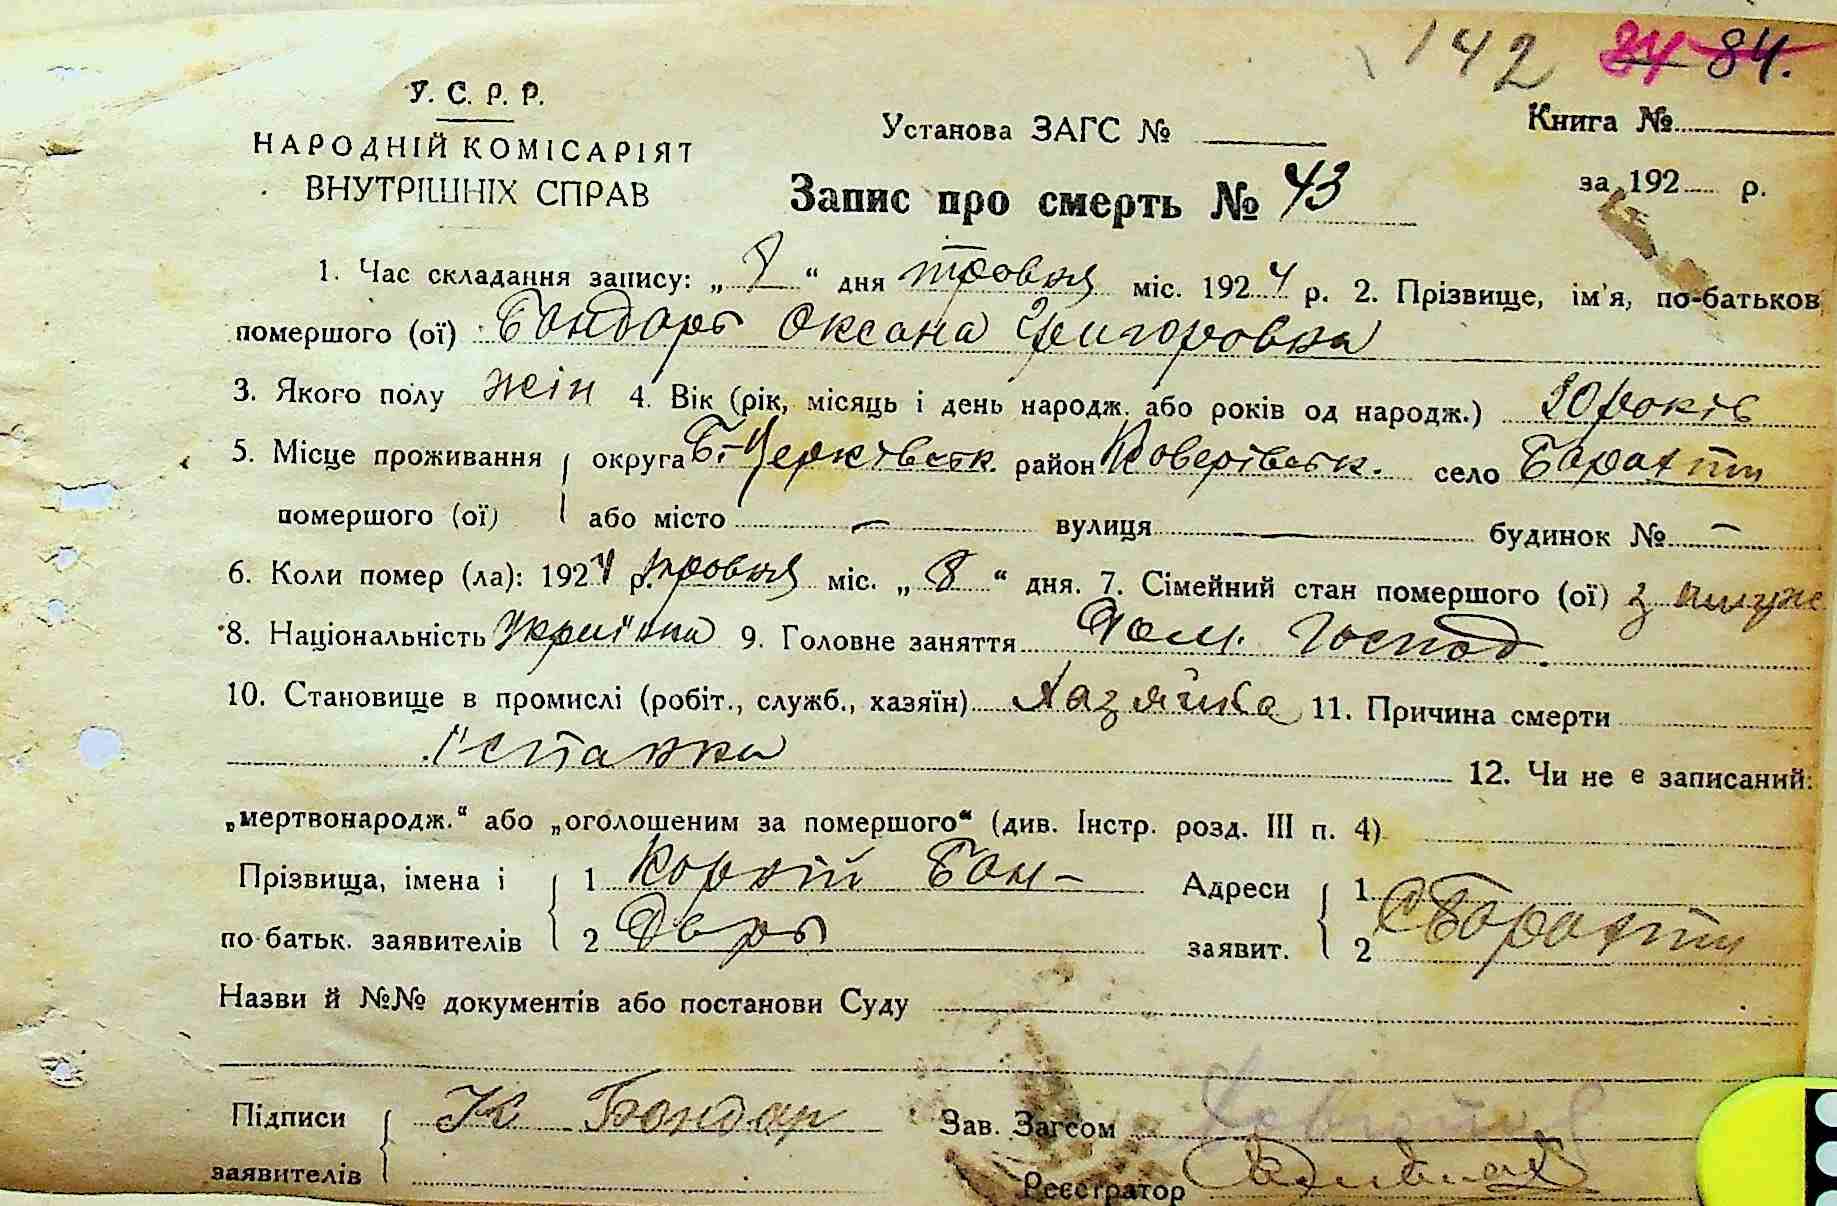 142 84 84.
У. С. Р. Р.
НАРОДНІЙ КОМІСАРІЯТ
ВНУТРІШНІХ СПРАВ
Установа ЗАГС №
Книга №
за 192 р.
Запис про смерть № 43
1. Час складання запису: „ 8 “ дня травня міс. 1924 р. 2. Прізвище, ім'я, по-батьков
помершого (ої) Бондарь Оксана Григоровна
3. Якого полу жін 4. Вік (рік, місяць і день народж. або років од народж.) 30 років
5. Місце проживання округа Б.-Церківськ. район Коверівськ. село Барахти
помершого (ої) або місто — вулиця — будинок № —
6. Коли помер (ла): 1924 р. травня міс. „ 8 “ дня. 7. Сімейний стан помершого (ої)
8. Національність Українка 9. Головне заняття Дом. Господ.
10. Становище в промислі (робіт., служб., хазяїн) Хазяйка 11. Причина смерти
12. Чи не є записаний:
„мертвонародж.“ або „оголошеним за помершого“ (див. Інстр. розд. III п. 4)
Прізвища, імена і 1 Корній Бон- Адреси 1
по батьк. заявителів 2 дарь заявит. 2 с Барахти
Назви й №№ документів або постанови Суду
Підписи К Бондар Зав. Загсом
заявителів Реєстратор